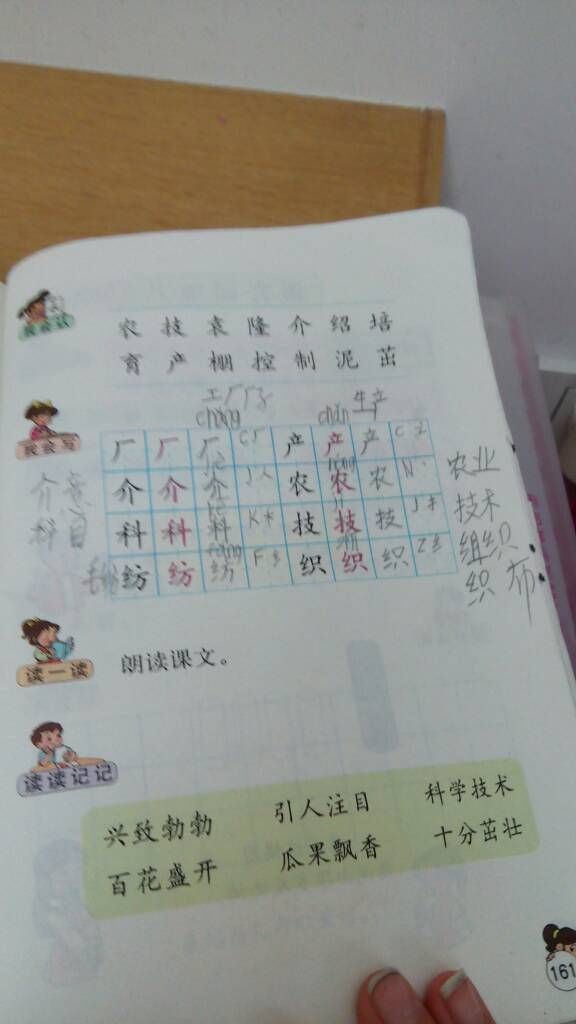 我会认
农 技 袁 隆 介 绍 培
育 产 棚 控 制 泥 茁
工厂 厂子 生产
chǎng chǎn
我会写
厂 厂 厂 C厂 产 产 产 C
介意 介 介 介 J人 农 农 农 N 农业
科目 科 科 科 K禾 技 技 技 J扌 技术
纺 纺 纺 F纟 织 织 织 Z纟 组织
织布
读一读 朗读课文。
读读记记
兴致勃勃 引人注目 科学技术
百花盛开 瓜果飘香 十分茁壮
161